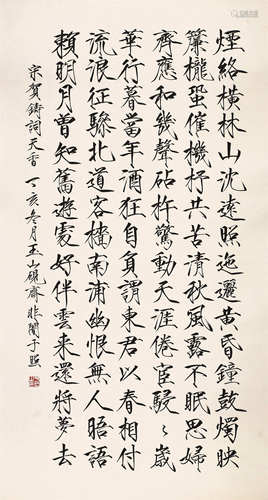 煙絡橫林山沈遠照迤邐黃昏鐘鼓燭映
簾櫳蛩催機杼共苦清秋風露不眠思婦
齊應和幾聲砧杵驚動天涯倦宦駸〻歲
華行暮當年酒狂自負謂東君以春相付
流浪征驂北道客檣南浦幽恨無人晤語
賴明月曾知舊遊處好伴雲來還將夢去
宋賀鑄詞天香 丁亥冬月玉山硯齋非闇于照